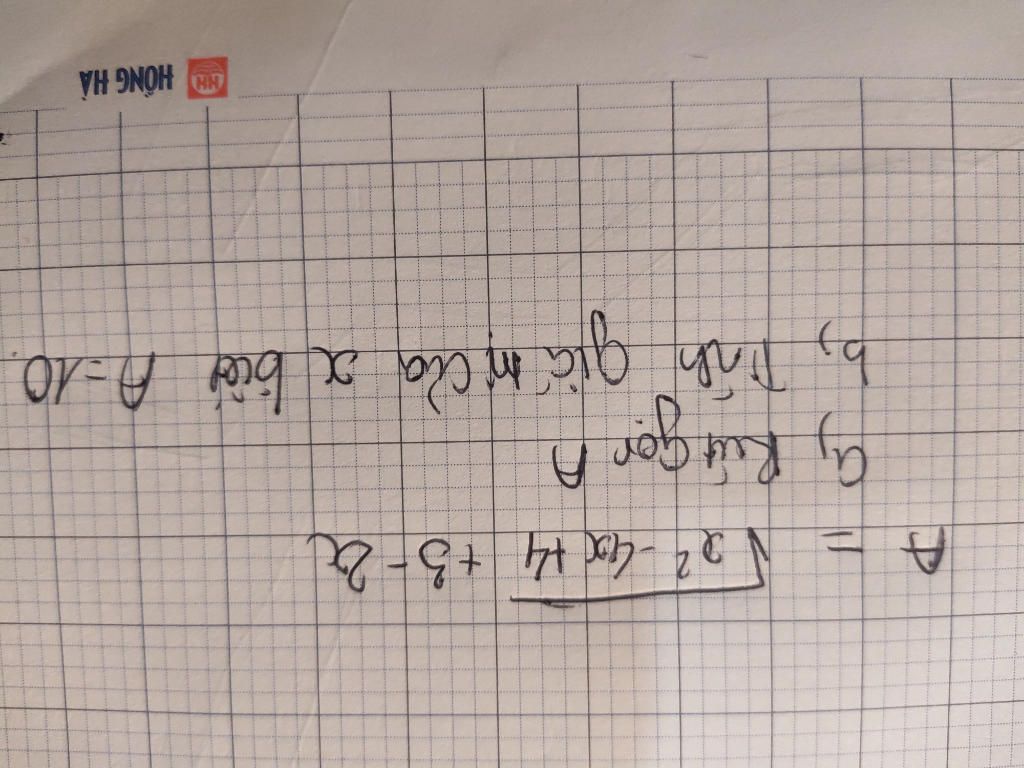 A = √x² - 4x + 4 + 3 - 2x
a, Rút gọn A
b, Tính giá trị của x biết A = 10.
HỒNG HÀ
HH